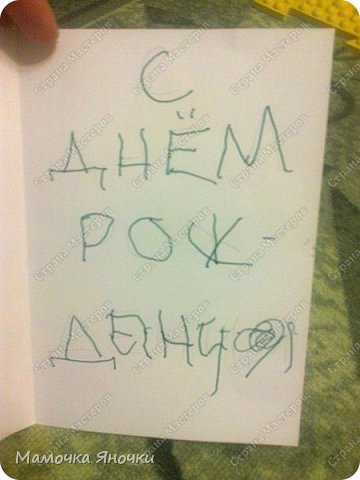 С
ДНЁМ
РОЖ-
ДЕНИЯ
Мамочка Яночки
Страна Мастеров